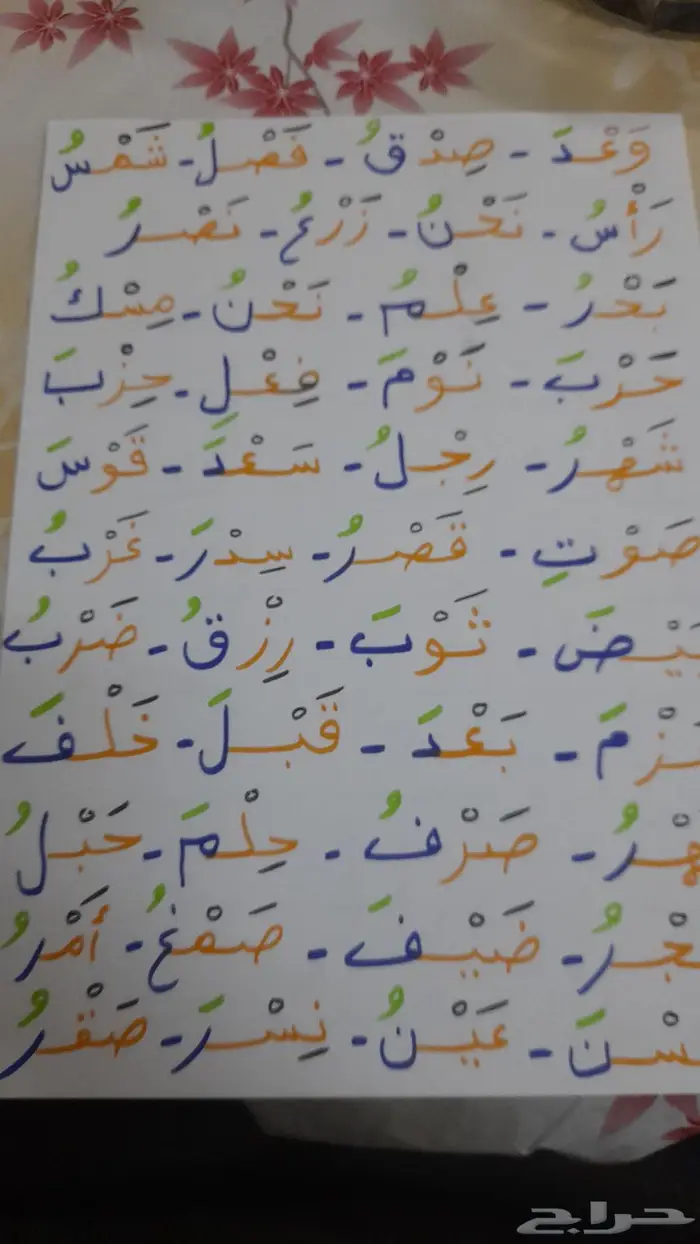 وَعْدَ - صِدْقُ - فَصْلُ - شَمْسُ
رَأْسُ - نَحْنُ - زَرْعُ - نَصْرُ
بَحْرُ - عِلْمُ - نَحْنُ - مِسْكُ
حَرْبَ - نَوْمَ - فِعْلِ - حِزْبَ
شَهْرُ - رِجْلُ - سَعْدَ - قَوْسَ
صَوْتِ - قَصْرُ - سِدْرَ - غَرْبُ
ثَوْبَ - رِزْقُ - ضَرْبُ
بَعْدَ - قَبْلَ - خَلْفَ
صَرْفُ - حِلْمَ - حَبْلُ
ضَيْفَ - صَمْغُ - أَمْرُ
عَيْنُ - نِسْرَ - صَقْرُ
حراج